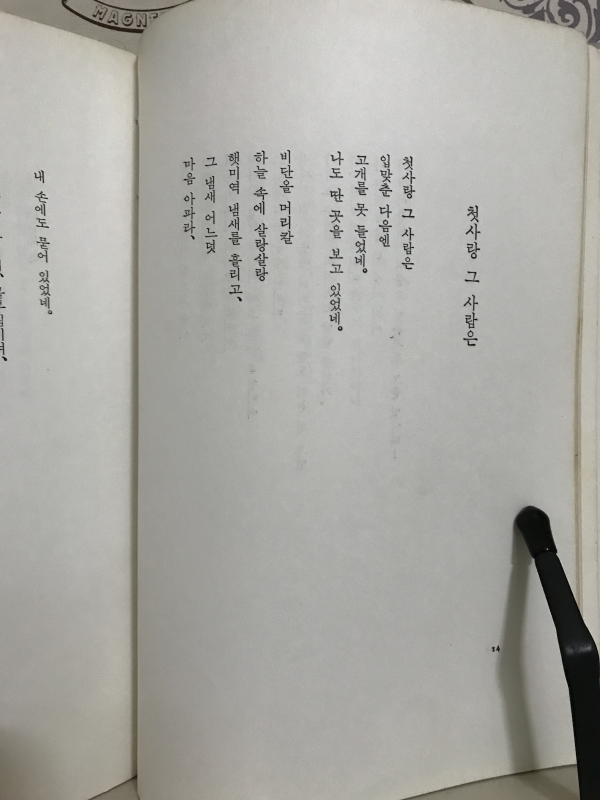 MAGN
첫사랑 그 사람은
첫사랑 그 사람은
입맞춘 다음엔
고개를 못 들었네。
나도 딴 곳을 보고 있었네。
비단올 머리칼
하늘 속에 살랑살랑
햇미역 냄새를 흘리고、
그 냄새 어느덧
마음 아파라、
14
내 손에도 묻어 있었네。